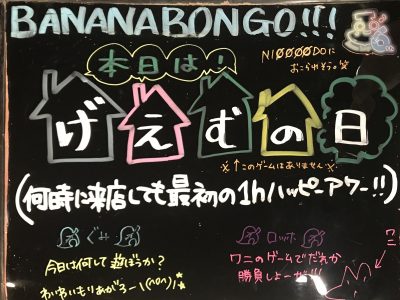 BANANABONGO!!!
NIØØØØDOに
おこられそう。
本日は!
げえむの日
↑このゲームはありません
(何時に来店しても最初の1hハッピーアワー!!)
ぐみ
今日は何して遊ぼうか?
わいわいもりあがろー\(^o^)/
ロッカ
ワニのゲームでだれか
勝負しよーが!!!
ワニ